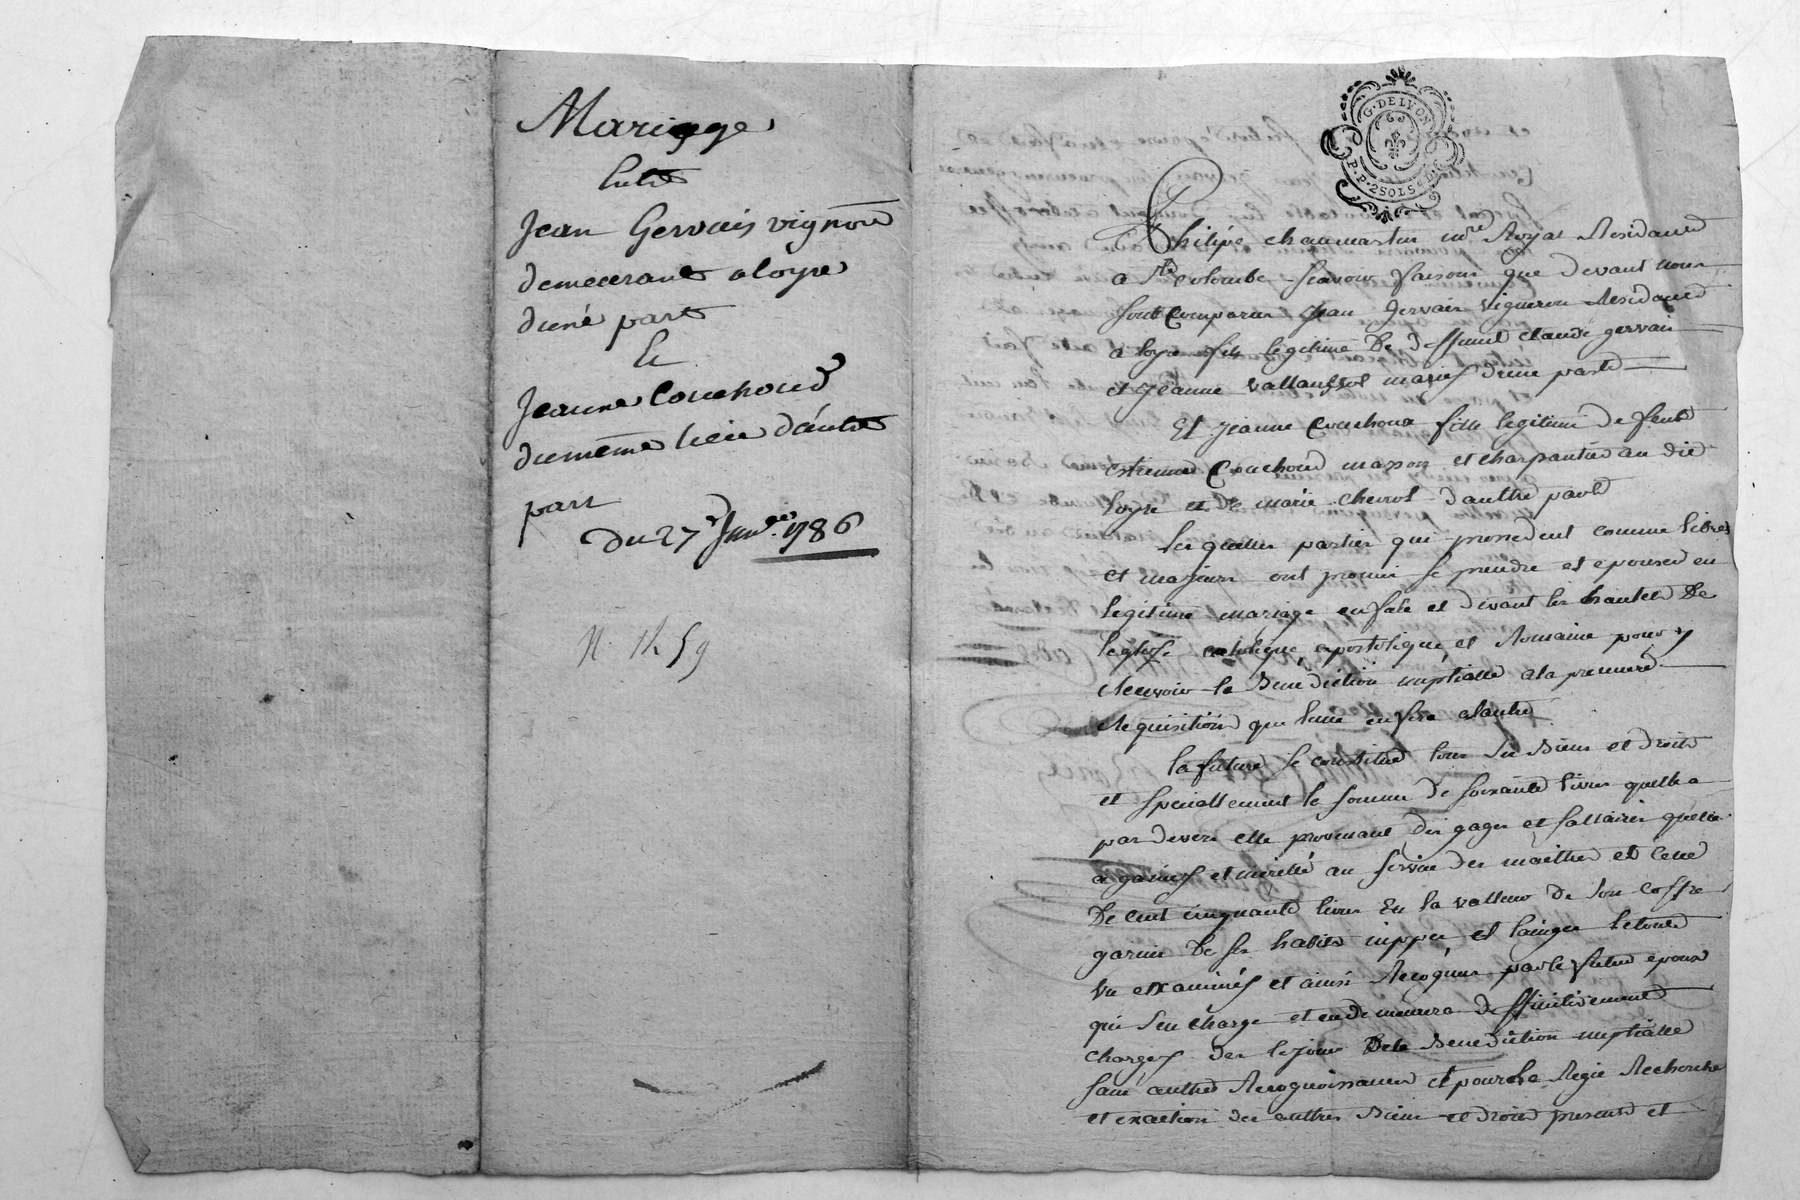 Mariage
Entre
Jean Gervais vignon
demeurant a loyre
d'une part
Et
Jeanne Couchoud
du meme lieu d'autre
part
Du 27 Janv. 1786
N. 1h 59
G. DE LYON
P. P. 2 SOLS 4 D.
Philipe chaumartin nre Royal Residant
a Ste colombe scavoir faisons que devant nous
sont Comparus Jean Gervais vigneron Residant
a loyre fils legitime De deffunt claude gervais
et Jeanne vallansot maries d'une part
Et Jeanne Couchoux fille legitime de feut
estienne Couchoud masson et charpantier au dit
loyre et De marie chevrot d'autre part
les quelles parties qui procedent comme libres
et majeurs ont promis se prendre et epouser en
legitime mariage en face et devant les hautels De
leglise catolique apostolique et Romaine pour y
Recevoir la Benediction nuptialle a la premiere
Requisition que lune en fera a lautre
la future se constitue tous ses Biens et droits
et speciallement la somme de soixante livres quelle a
par devers elle provenant des gages et sallaires quelle
a gaignes et merité au service des maitres et Celle
De cent cinquante livres En la valleur de son coffre
garnie De ses habits nippes et linges le tout
vu examinés et ainsi Recognus par le futur epoux
qui sen charge et en demeurera deffinitivement
charges des le jour De la Benediction nuptialle
sans autres Recognoissances et pour la Regie Recherche
et exaction des autres Biens et droits presents et